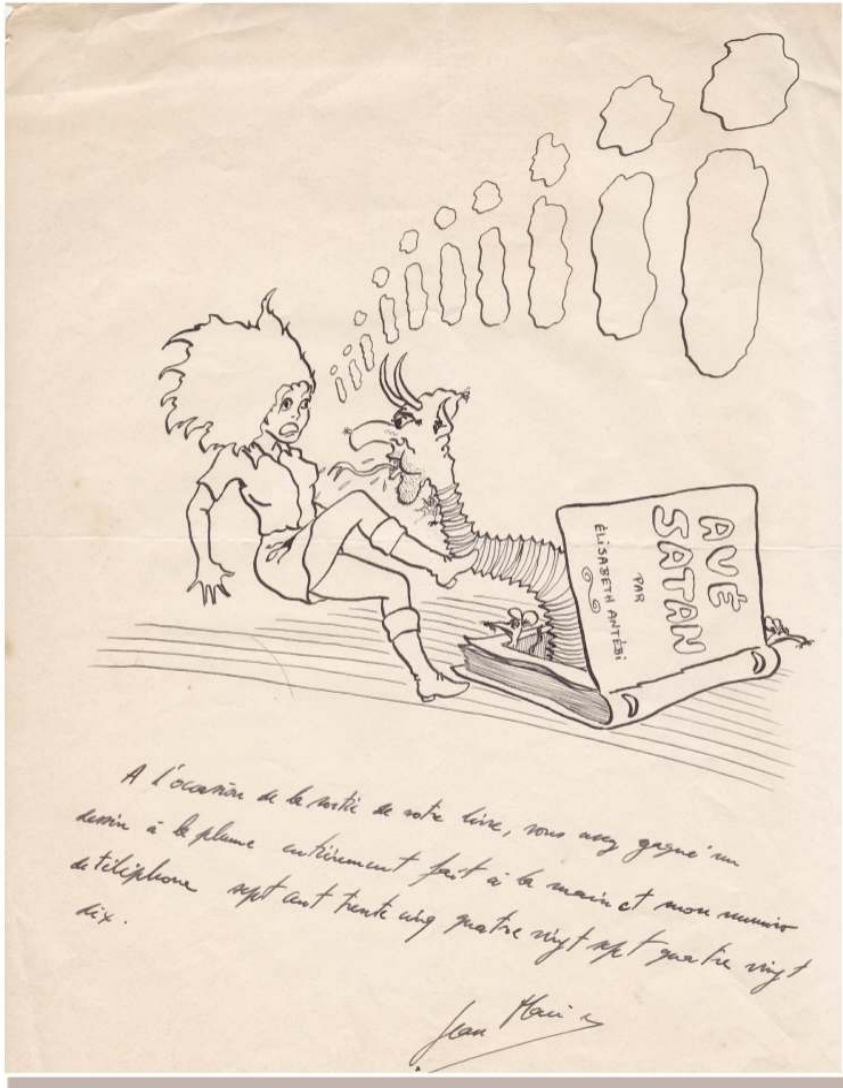 AVÉ
SATAN
PAR
ÉLISABETH ANTÉBI
A l'occasion de la sortie de votre livre, vous avez gagné un
dessin à la plume entièrement fait à la main et mon numéro
de téléphone sept cent trente cinq quatre vingt sept quatre vingt
dix.
Jean